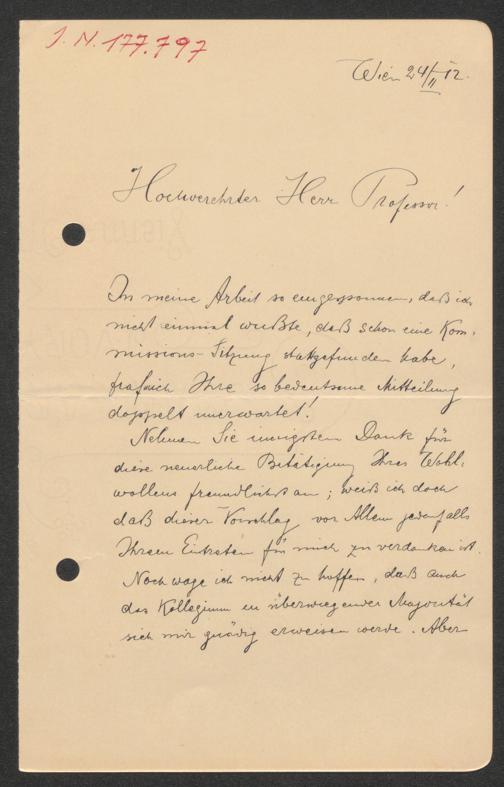 J. N. 177.797
Wien 24/II 12.
Hochverehrter Herr Professor!
In meine Arbeit so eingesponnen, daß ich
nicht einmal wußte, daß schon eine Kom-
missions-Sitzung stattgefunden habe,
traf mich Ihre so bedeutsame Mitteilung
doppelt unerwartet!
Nehmen Sie innigsten Dank für
diese neuerliche Betätigung Ihres Wohl-
wollens freundlichst an; weiß ich doch
daß dieser Vorschlag vor Allem jedenfalls
Ihrem Eintreten für mich zu verdanken ist.
Noch wage ich nicht zu hoffen, daß auch
das Kollegium in überwiegender Majorität
sich mir gnädig erweisen werde. Aber